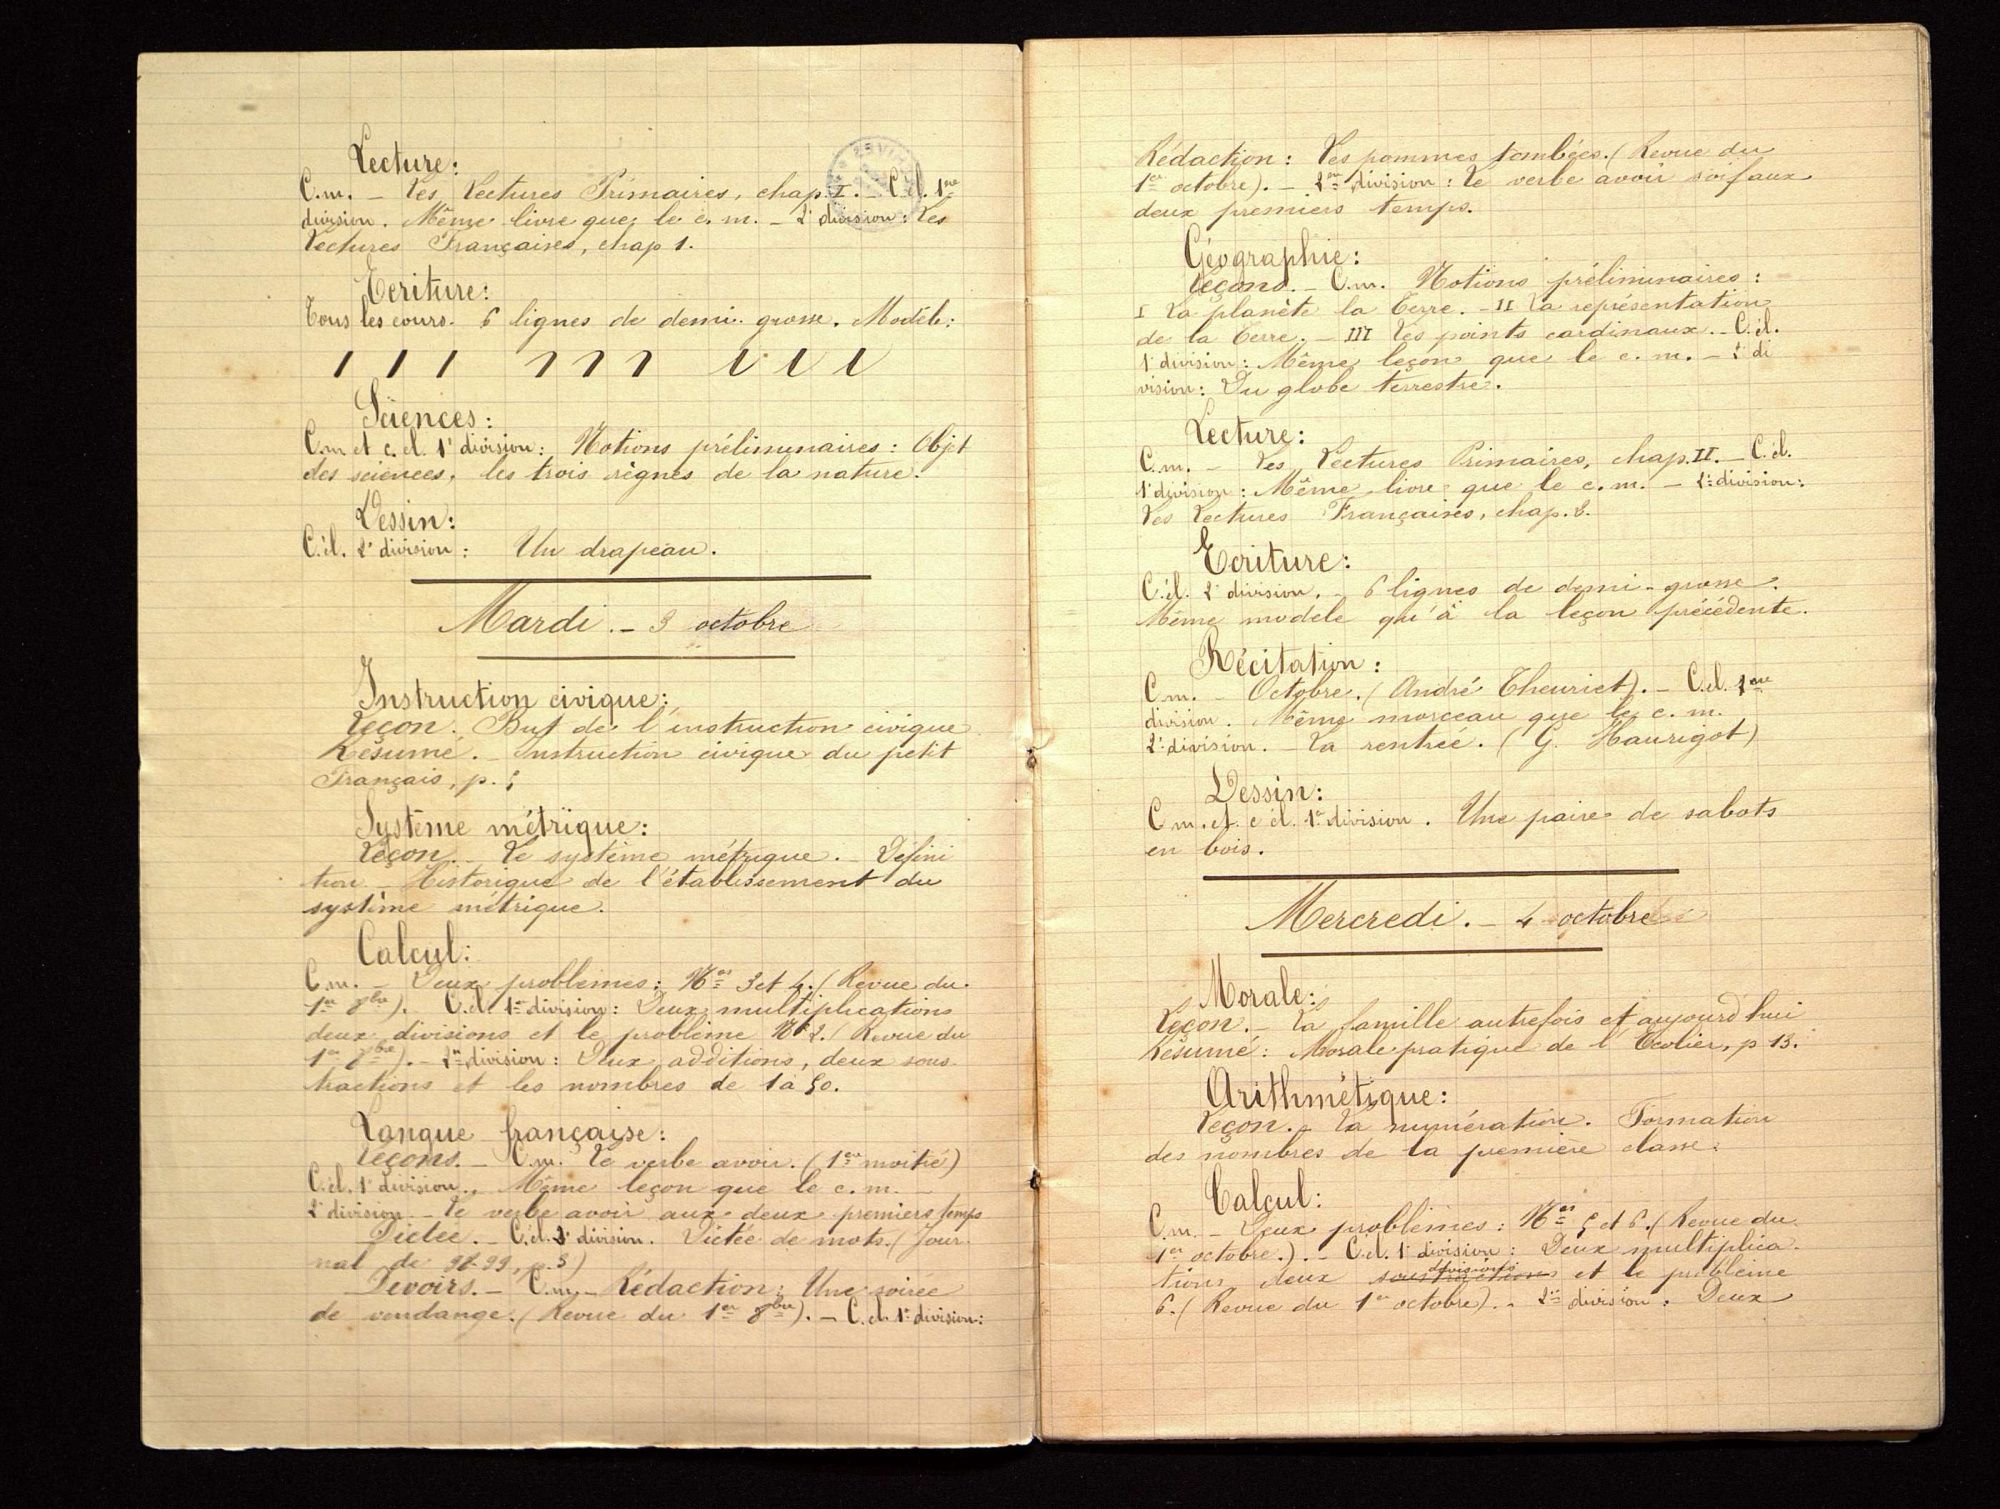 Lecture:
C.m. – Les Lectures Primaires, chap. I. – C. él. 1ère
division. Même livre que le c. m. – 2e division: Les
Lectures Françaises, chap 1.
Ecriture:
Tous les cours. 6 lignes de demi-grosse. Modèle:
Sciences:
C.m et c. el. 1e division: Notions préliminaires: Objet
des sciences, les trois règnes de la nature.
Dessin:
C. él. 2e division: Un drapeau.
Mardi. – 3 octobre
Instruction civique:
Leçon. But de l'instruction civique
Résumé. – Instruction civique du petit
Français, p. 5
Système métrique:
Leçon. – Le système métrique. – Défini
tion – Historique de l'établissement du
système métrique.
Calcul:
C.m. – Deux problèmes: Nos 3 et 4. (Revue du
1er 8bre). C. él. 1e division: Deux multiplications
deux divisions et le problème No 2. (Revue du
1er 8bre). – 2e division: Deux additions, deux sous
tractions et les nombres de 1 à 50.
Langue française:
Leçons. – C.m. Le verbe avoir. (1ère moitié)
C. él. 1e division. Même leçon que le c. m. –
2e division – Le verbe avoir aux deux premiers temps
Dictée. – C. él. 2e division. Dictée de mots. (Jour
nal de 98-99, p. 3)
Devoirs. – C.m. – Rédaction: Une soirée
de vendange. (Revue du 1er 8bre). – C. el. 1e division:
Rédaction: Les pommes tombées. (Revue du
1er octobre). – 2me division: le verbe avoir soif aux
deux premiers temps.
Géographie:
Leçons. – C.m. Notions préliminaires:
I La planète la Terre. – II La représentation
de la Terre. – III Les points cardinaux. – C. él.
1e division: Même leçon que le c. m. – 2e di
vision: Du globe terrestre.
Lecture:
C.m. – Les Lectures Primaires, chap. II. – C. él.
1e division: Même livre que le c. m. – 2e division:
Les Lectures Françaises, chap. 2.
Ecriture:
C. él. 2e division. – 6 lignes de demi-grosse.
Même modèle qu'à la leçon précédente.
Récitation:
C.m. – Octobre. (André Theuriet). – C. el. 1ère
division. Même morceau que le c. m.
2e division. – La rentrée. (G. Haurigot)
Dessin:
C m. et c él. 1e division. Une paire de sabots
en bois.
Mercredi. – 4 octobre
Morale:
Leçon. – La famille autrefois et aujourd'hui
Résumé: Morale pratique de l'Ecolier, p 13.
Arithmétique:
Leçon. – La numération. Formation
des nombres de la première classe.
Calcul:
C.m. – Deux problèmes: Nos 5 et 6. (Revue du
1er octobre.). – C. él. 1e division: Deux multiplica
tions deux soustractions divisions et le problème
6. (Revue du 1er octobre). – 2e division: Deux